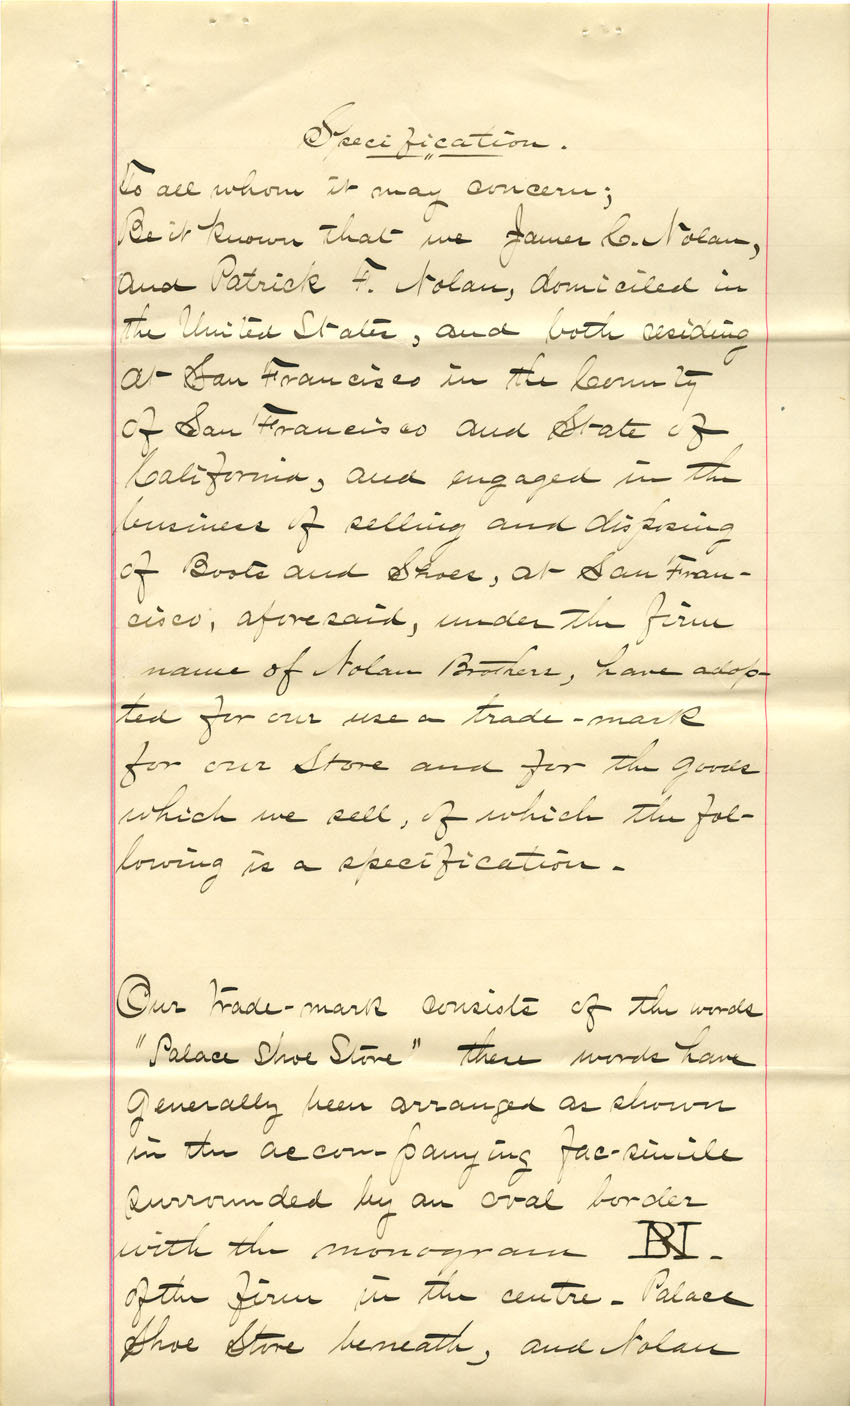 Specification.
To all whom it may concern;
Be it known that we James C. Nolan,
and Patrick F. Nolan, domiciled in
the United States, and both residing
at San Francisco in the County
of San Francisco and State of
California, and engaged in the
business of selling and disposing
of Boots and Shoes, at San Fran-
cisco, aforesaid, under the firm
name of Nolan Brothers, have adop-
ted for our use a trade-mark
for our Store and for the goods
which we sell, of which the fol-
lowing is a specification.
Our trade-mark consists of the words
"Palace Shoe Store" these words have
generally been arranged as shown
in the accom-panying fac-simile
surrounded by an oval border
with the monogram
of the firm in the centre - Palace
Shoe Store beneath, and Nolan